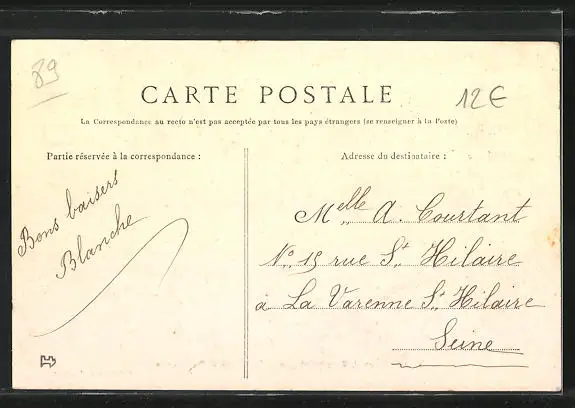 89
CARTE POSTALE
12€
La Correspondance au recto n'est pas acceptée par tous les pays étrangers (se renseigner à la Poste)
Partie réservée à la correspondance :
Bons baisers
Blanche
Adresse du destinataire :
Melle A. Courtant
No. 19 rue St. Hilaire
à La Varenne St. Hilaire
Seine